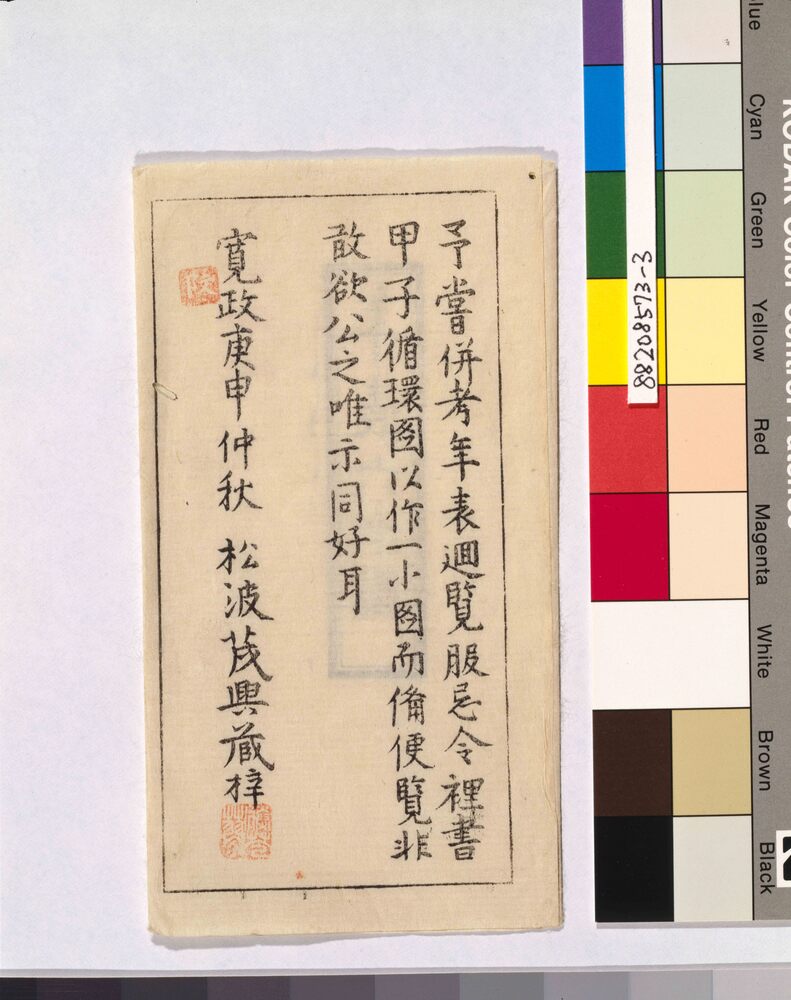 予嘗併考年表迴覧服忌令裡書
甲子循環図以作一小図而備便覧非
敢欲公之唯示同好耳
寛政庚申仲秋 松波茂興蔵梓
88208573-3
Cyan
Green
Yellow
Red
Magenta
White
Brown
Black